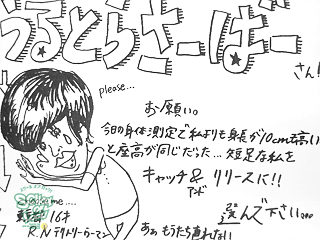 うるとらさーばー
さん!
please...
お願い。
今日の身体測定で私よりも身長が10cm高い
と座高が同じだった…短足な私を
キャッチ&リリースに!!
アンド
選んで下さい…
ああ もうたち直れない
me....
東京都 16才
R.N テリトリーラーマン